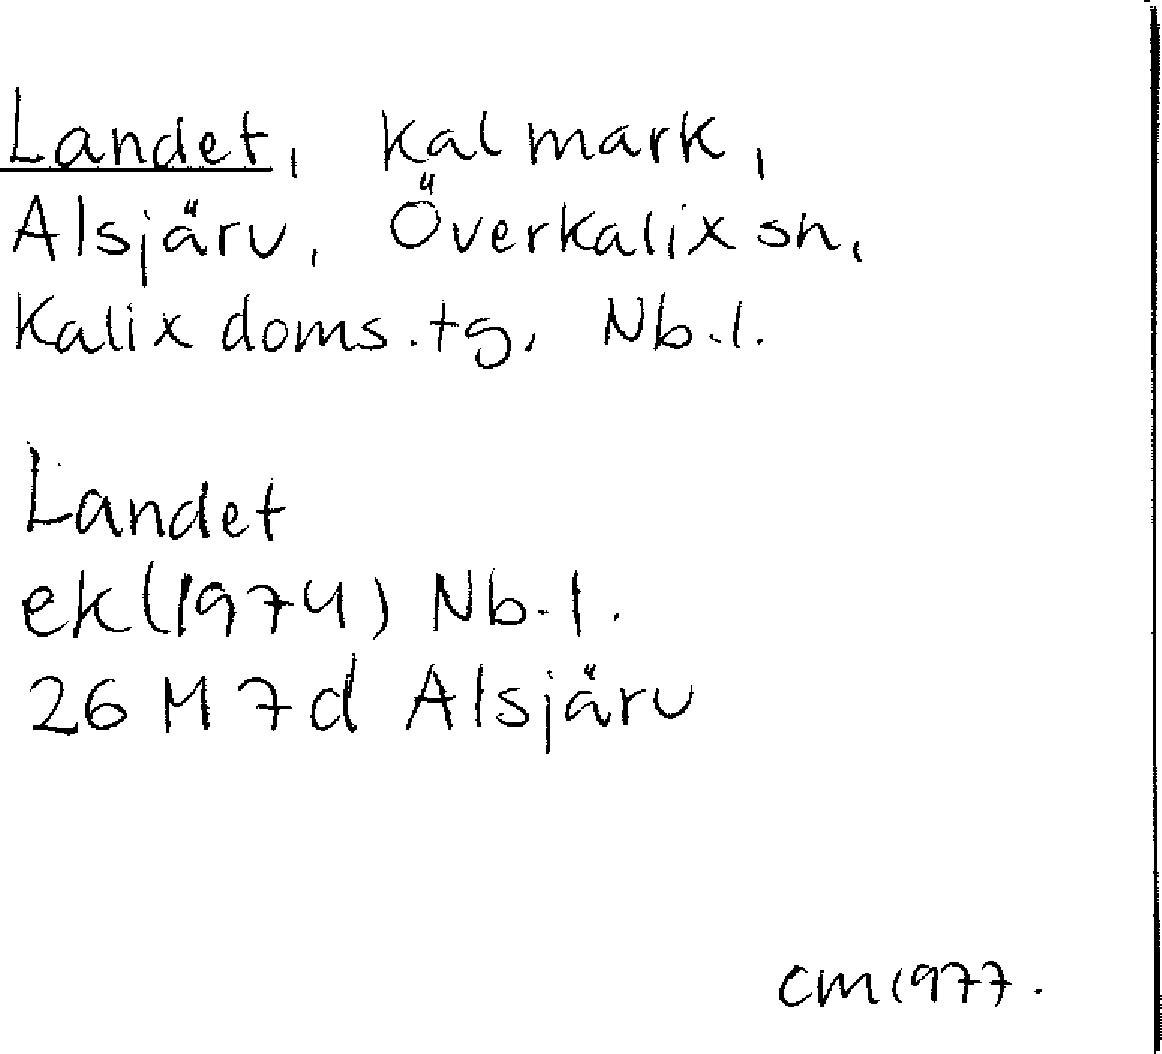 Landet, kal mark,
Alsjärv, Överkalix sn,
Kalix doms.tg, Nb.l.
Landet
ek(1974) Nb.l.
26 M 7d Alsjärv
CM 1977.